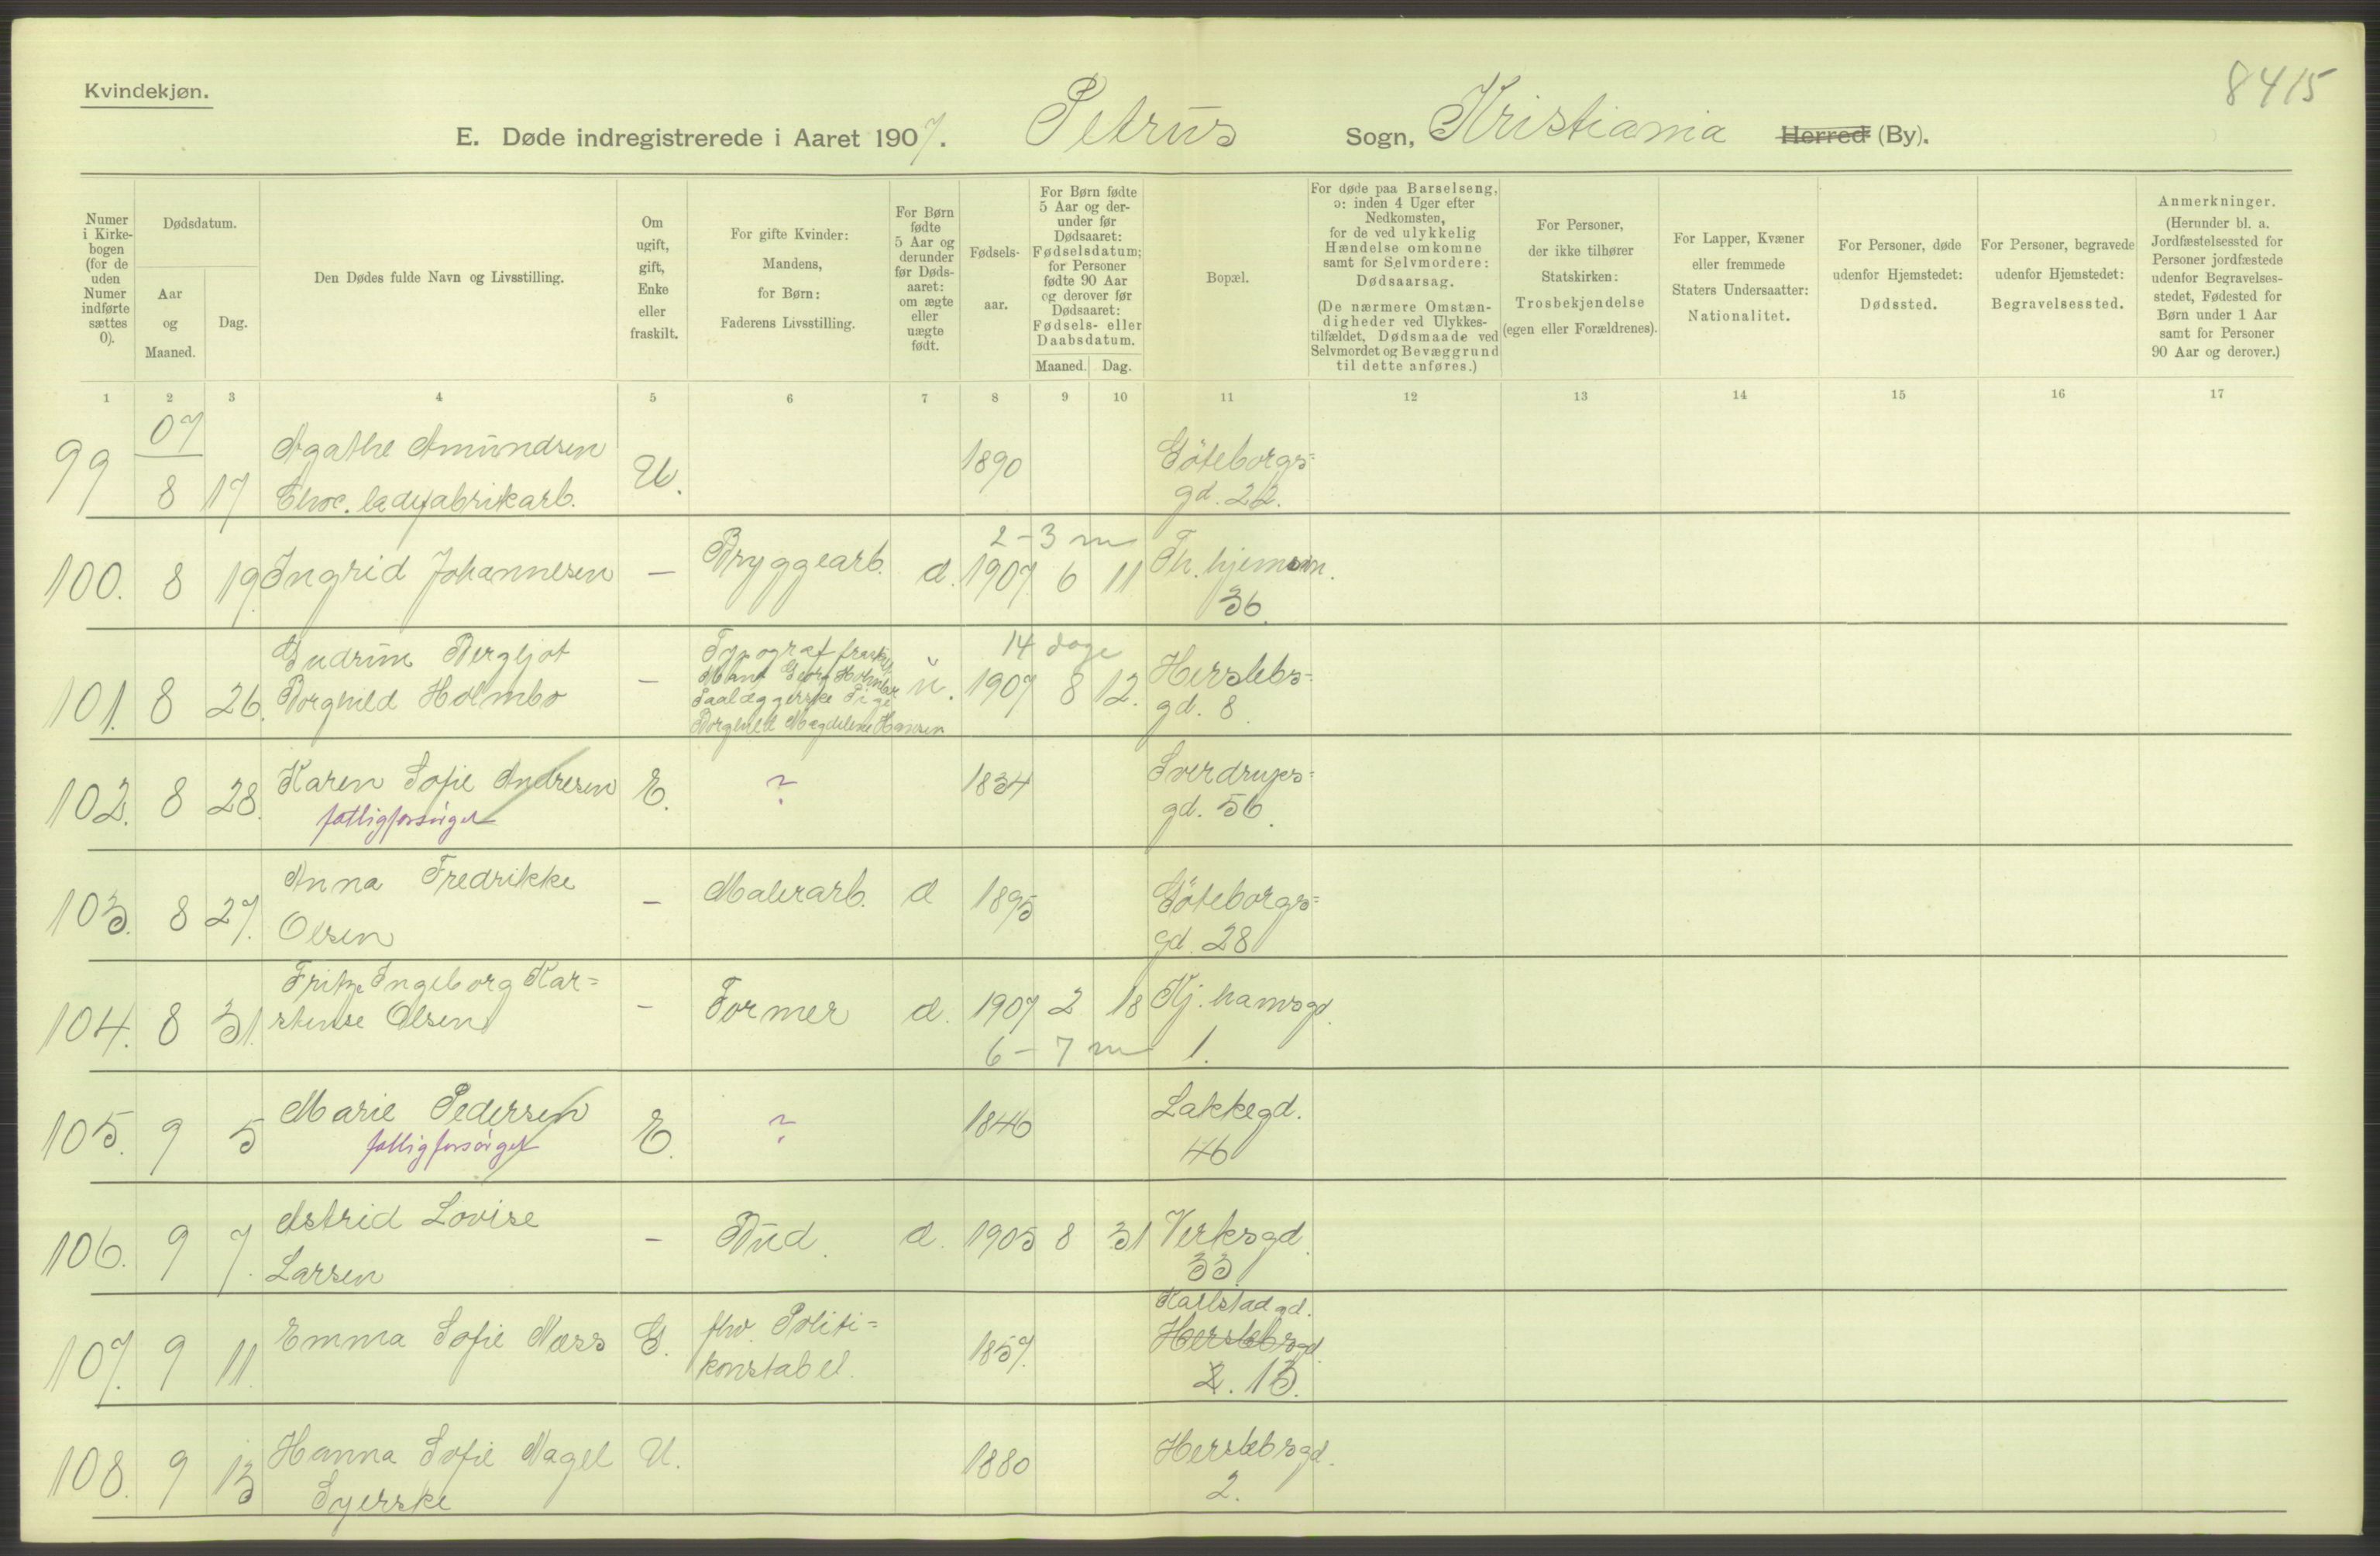 Kvindekjøn.
8415
E. Døde indregistrerede i Aaret 1907. Petrus Sogn, Kristiania Herred (By).
Numer i Kirke-bogen (for de uden Numer indførte sættes 0).
Dødsdatum.
Aar og Maaned.
Dag.
Den Dødes fulde Navn og Livsstilling.
Om ugift, gift, Enke eller fraskilt.
For gifte Kvinder: Mandens, for Børn: Faderens Livsstilling.
For Børn fødte 5 Aar og derunder før Døds-aaret: om ægte eller uægte født.
Fødsels-aar.
For Børn fødte 5 Aar og der-under før Dødsaaret: Fødselsdatum; for Personer fødte 90 Aar og derover før Dødsaaret: Fødsels- eller Daabsdatum.
Maaned. Dag.
Bopæl.
For døde paa Barselseng, ɔ: inden 4 Uger efter Nedkomsten, for de ved ulykkelig Hændelse omkomne samt for Selvmordere: Dødsaarsag.
(De nærmere Omstæn-digheder ved Ulykkes-tilfældet, Dødsmaade ved Selvmordet og Bevæggrund til dette anføres.)
For Personer, der ikke tilhører Statskirken: Trosbekjendelse (egen eller Forældrenes).
For Lapper, Kvæner eller fremmede Staters Undersaatter: Nationalitet.
For Personer, døde udenfor Hjemstedet: Dødssted.
For Personer, begravede udenfor Hjemstedet: Begravelsessted.
Anmerkninger.
(Herunder bl. a. Jordfæstelsessted for Personer jordfæstede udenfor Begravelses-stedet, Fødested for Børn under 1 Aar samt for Personer 90 Aar og derover.)
1 2 3 4 5 6 7 8 9 10 11 12 13 14 15 16 17
07
99 8 17 Agathe Amundsen U. 1890 Göteborgs=
Choc.ladefabrikarb. gd. 22.
2-3 m
100. 8 19. Ingrid Johannesen — Bryggearb. d. 1907 6 11 Th.hjemsvn.
36.
101. 8 26. Gudrun Bergljot — Typograf fraskilt 14 dage
Mand Georg Holmbo u. 1907 8 12. Herslebs-
Borghild Holmbo Saalæggerske Pige gd. 8.
Borghild Magdelene Hansen
102. 8 28. Karen Sofie Andresen E. ? 1834 Sverdrups=
fattigforsørget gd. 56.
103. 8 27. Anna Fredrikke — Malerarb. d 1895 Göteborgs=
Olsen gd. 28
104. 8 31. Fritze Ingeborg Kar=
stense Olsen — Former d. 1907 2 18 Kj.havnsgd.
6-7 m 1.
105. 9 5 Marie Pedersen E. ? 1846 Lakkegd.
fattigforsørget 46
106. 9 7. Astrid Lovise — Bud. d. 1905 8 31 Verksgd.
Larsen 33.
Karlstadgd.
107. 9 11. Emma Sofie Næss G. fhv. Politi= 1857. Herslebsgd.
konstabel. 2. 13.
108. 9 13 Hanna Sofie Nagel U. 1880 Herslebsgd.
Syerske 2.